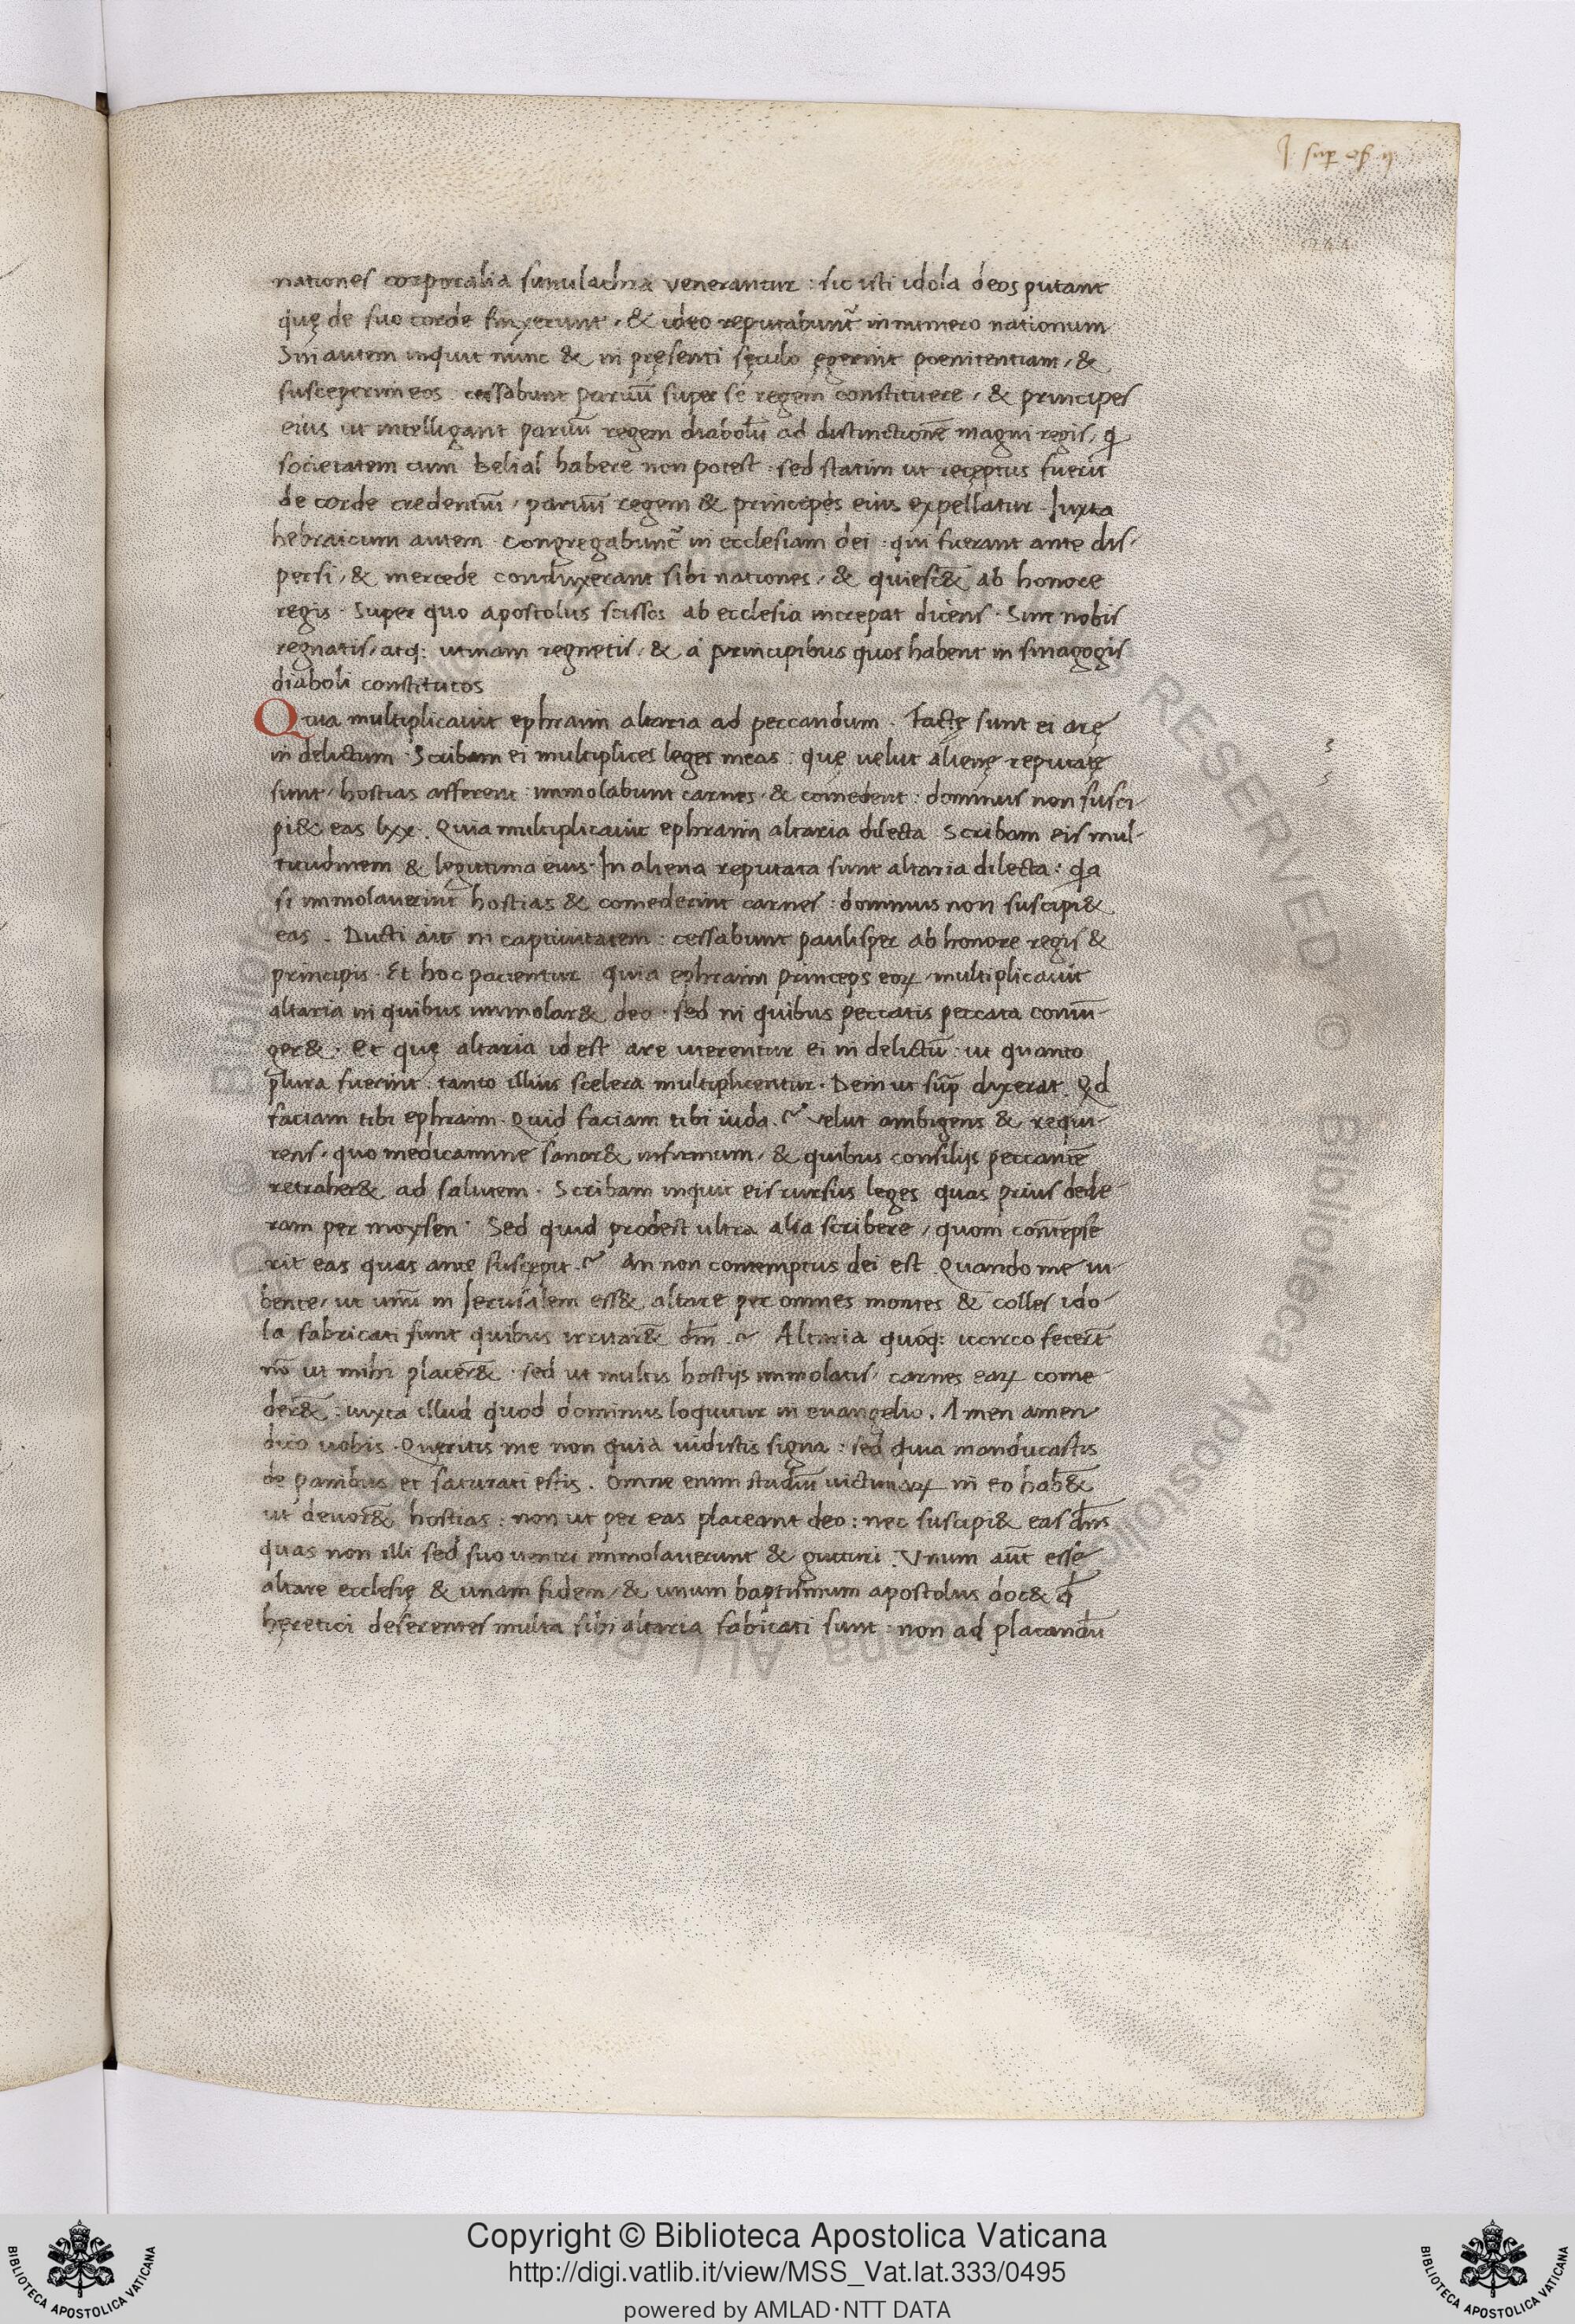 J. sup̄ of ij
nationes corporalia simulachra venerantur : sic isti idola deos putant
quę de suo corde finxerunt, & ideo reputabunt᷑ in numero nationum
Sin autem inquit nunc & in pręsenti sęculo ęgerint poenitentiam, &
susceperim eos cessabunt paruū super se regem constituere, & principes
eius ut intelligant paruū regem diabolū ad distinctionē magni regis, q̄
societatem cum belial habere non potest . sed statim ut receptus fuerit
de corde credentiū, paruū regem & principes eius expellatur . Iuxta
hebraicum autem congregabunt᷑ in ecclesiam dei : qui fuerant ante dis-
persi, & mercede conduxerant sibi nationes, & quiesc&̄ ab honore
regis . Super quo apostolus scissos ab ecclesia increpat dicens . Sine nobis
regnatis, atq: utinam regnetis, & a principibus quos habent in sinagogis
diaboli constitutos
Quia multiplicauit ephraim altaria ad peccandum . Factę sunt ei arę
in delictum . Scribam ei multiplices leges meas : quę uelut alienę reputatę
sunt, hostias afferent immolabunt carnes . & comedent : dominus non susci-
pi& eas lxx . Quia multiplicauit ephraim altaria dilecta Scribam eis mul-
titudinem & legitima eius . In aliena reputata sunt altaria dilecta : q̄a
si immolauerint hostias & comederint carnes : dominus non suscipi&
eas . Ducti aūt in captiuitatem : cessabunt paulisper ab honore regis &
principis . Et hoc patientur quia ephraim princeps eoꝝ multiplicauit
altaria in quibus immolar& deo . sed in quibus peccatis peccata coniū-
ger& . Et quę altaria id est are uterentur ei in delictū : ut quanto
plura fuerint : tanto illius scelera multiplicentur . Dein ut sup̄ dixerat . Qd
faciam tibi ephraim . Quid faciam tibi iuda . ~ velut ambigens & requi-
rens, quo medicamine sanar& infirmum, & quibus consilijs peccantē
retraher& ad salutem . Scribam inquit eis rursus leges quas prius dede-
ram per moysen . Sed quid prodest ultra alia scribere, quom contēpse
rit eas quas ante suscepit . ~ An non contemptus dei est . Quando me iu-
bente, ut unū in Ierusalem ess& altare per omnes montes & colles ido-
la fabricati sunt quibus irritar&̄ dm̄ . ~ Altaria quoq: iccirco fecert̄
nō ut mihi placer&̄ . sed ut multis hostijs immolatis, carnes eaꝝ come
der&̄ : iuxta illud quod dominus loquitur in euangelio . Amen amen
dico uobis . Quęritis me non quia uidistis signa : sed quia manducastis
de panibus et saturati estis . Omne enim studiū uictimaꝝ in eo hab&
ut deuor&̄ hostias : non ut per eas placeant deo : nec suscipi& eas dn̄s
quas non illi sed suo uentri immolauerunt & gutturi . Vnum aūt esse
altare ecclesię & unam fidem, & unum baptismum apostolus doc& qd̄
hęretici deserentes multa sibi altaria fabricati sunt : non ad placandū
Copyright © Biblioteca Apostolica Vaticana
http://digi.vatlib.it/view/MSS_Vat.lat.333/0495
powered by AMLAD·NTT DATA